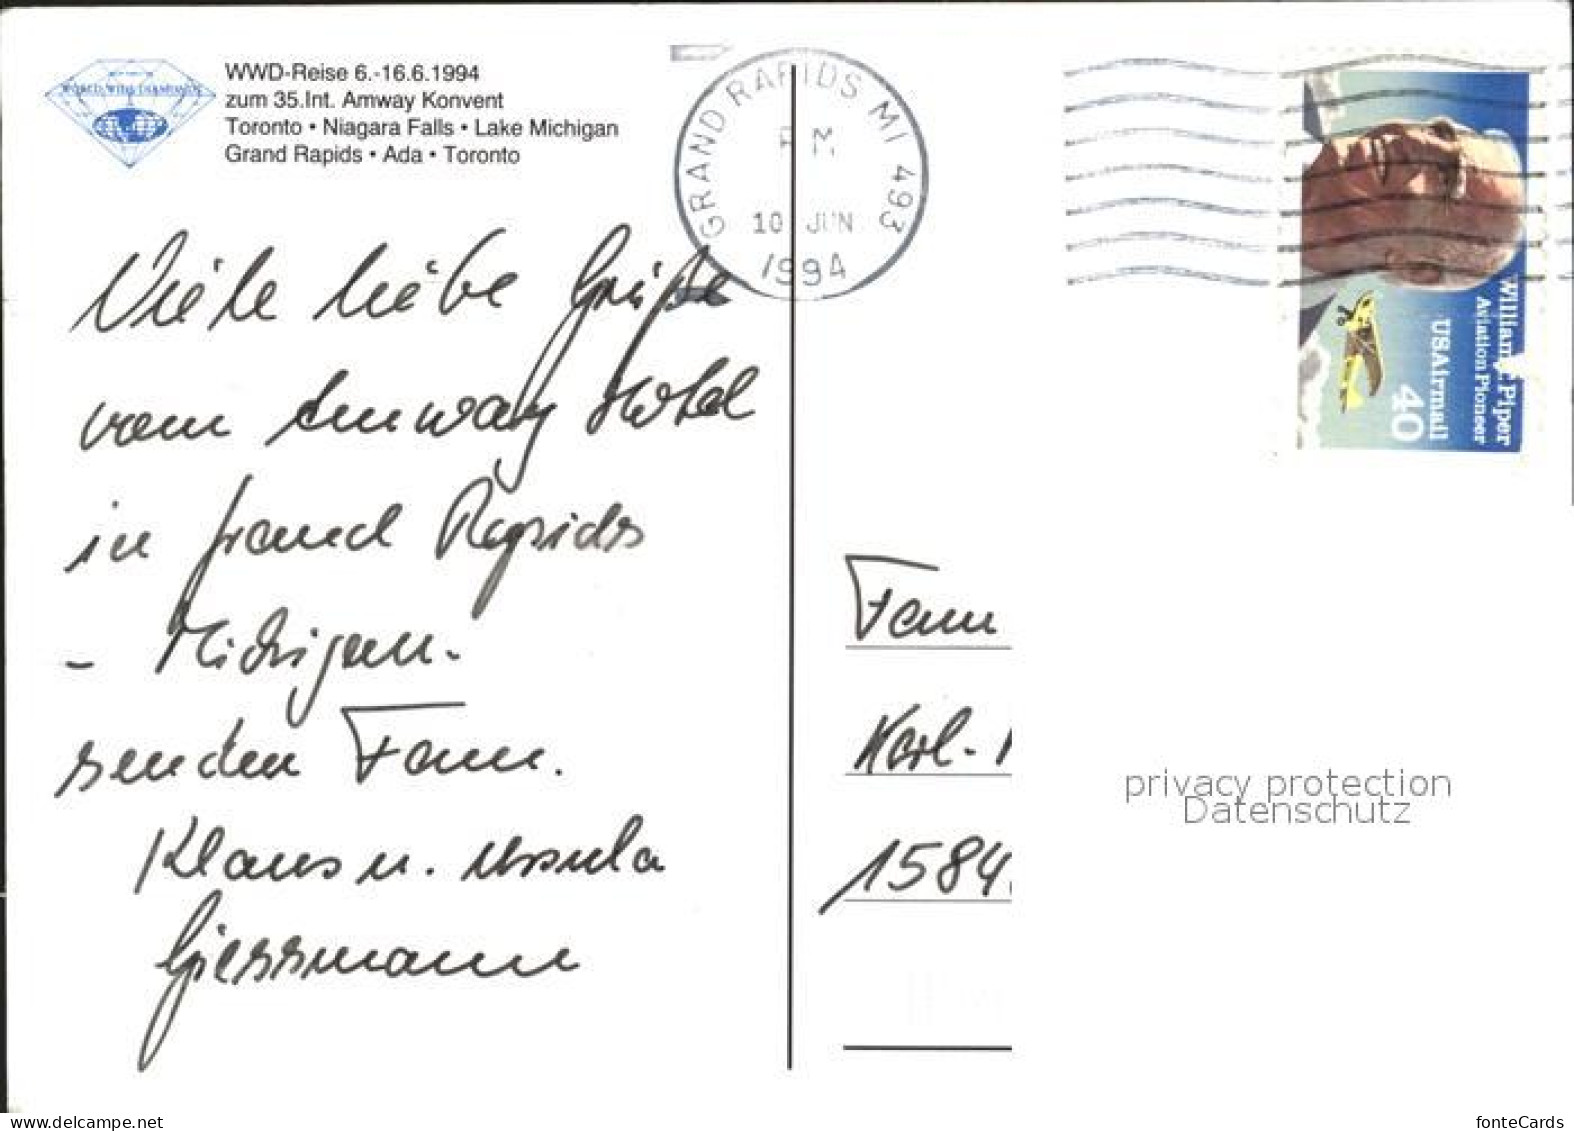 WORLD WIDE DIAMONDS
WWD-Reise 6.-16.6.1994
zum 35.Int. Amway Konvent
Toronto • Niagara Falls • Lake Michigan
Grand Rapids • Ada • Toronto
GRAND RAPIDS MI 493
PM
10 JUN
1994
William Piper
Aviation Pioneer
USAirmail
40
Viele liebe Grüße
vom Amway Hotel
in Grand Rapids
- Michigan.
senden Fam.
Klaus u. Ursula
Giessmann
Fam
Karl-
1584
privacy protection
Datenschutz
www.delcampe.net
fonteCards